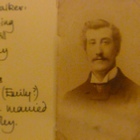 alker.
ing
d
y
(Emily?)
married
ley.